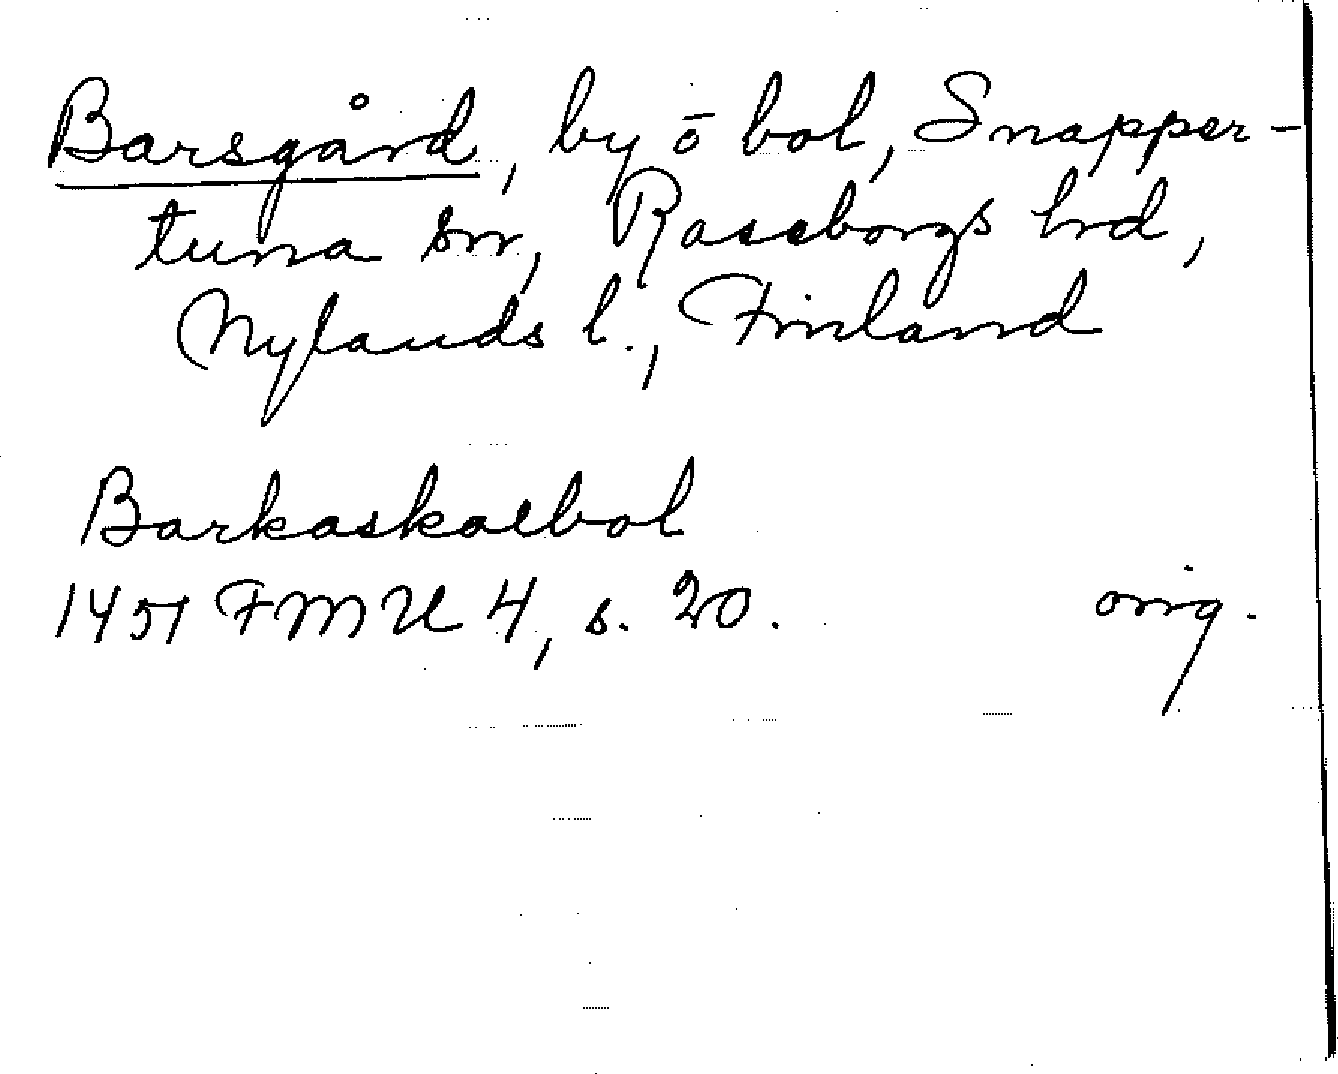 Barsgård, by ō bol, Snapper-
tuna sn, Raseborgs hrd,
Nylands l., Finland
Barkaskaebol
1451 FMU 4, s. 20. orig.